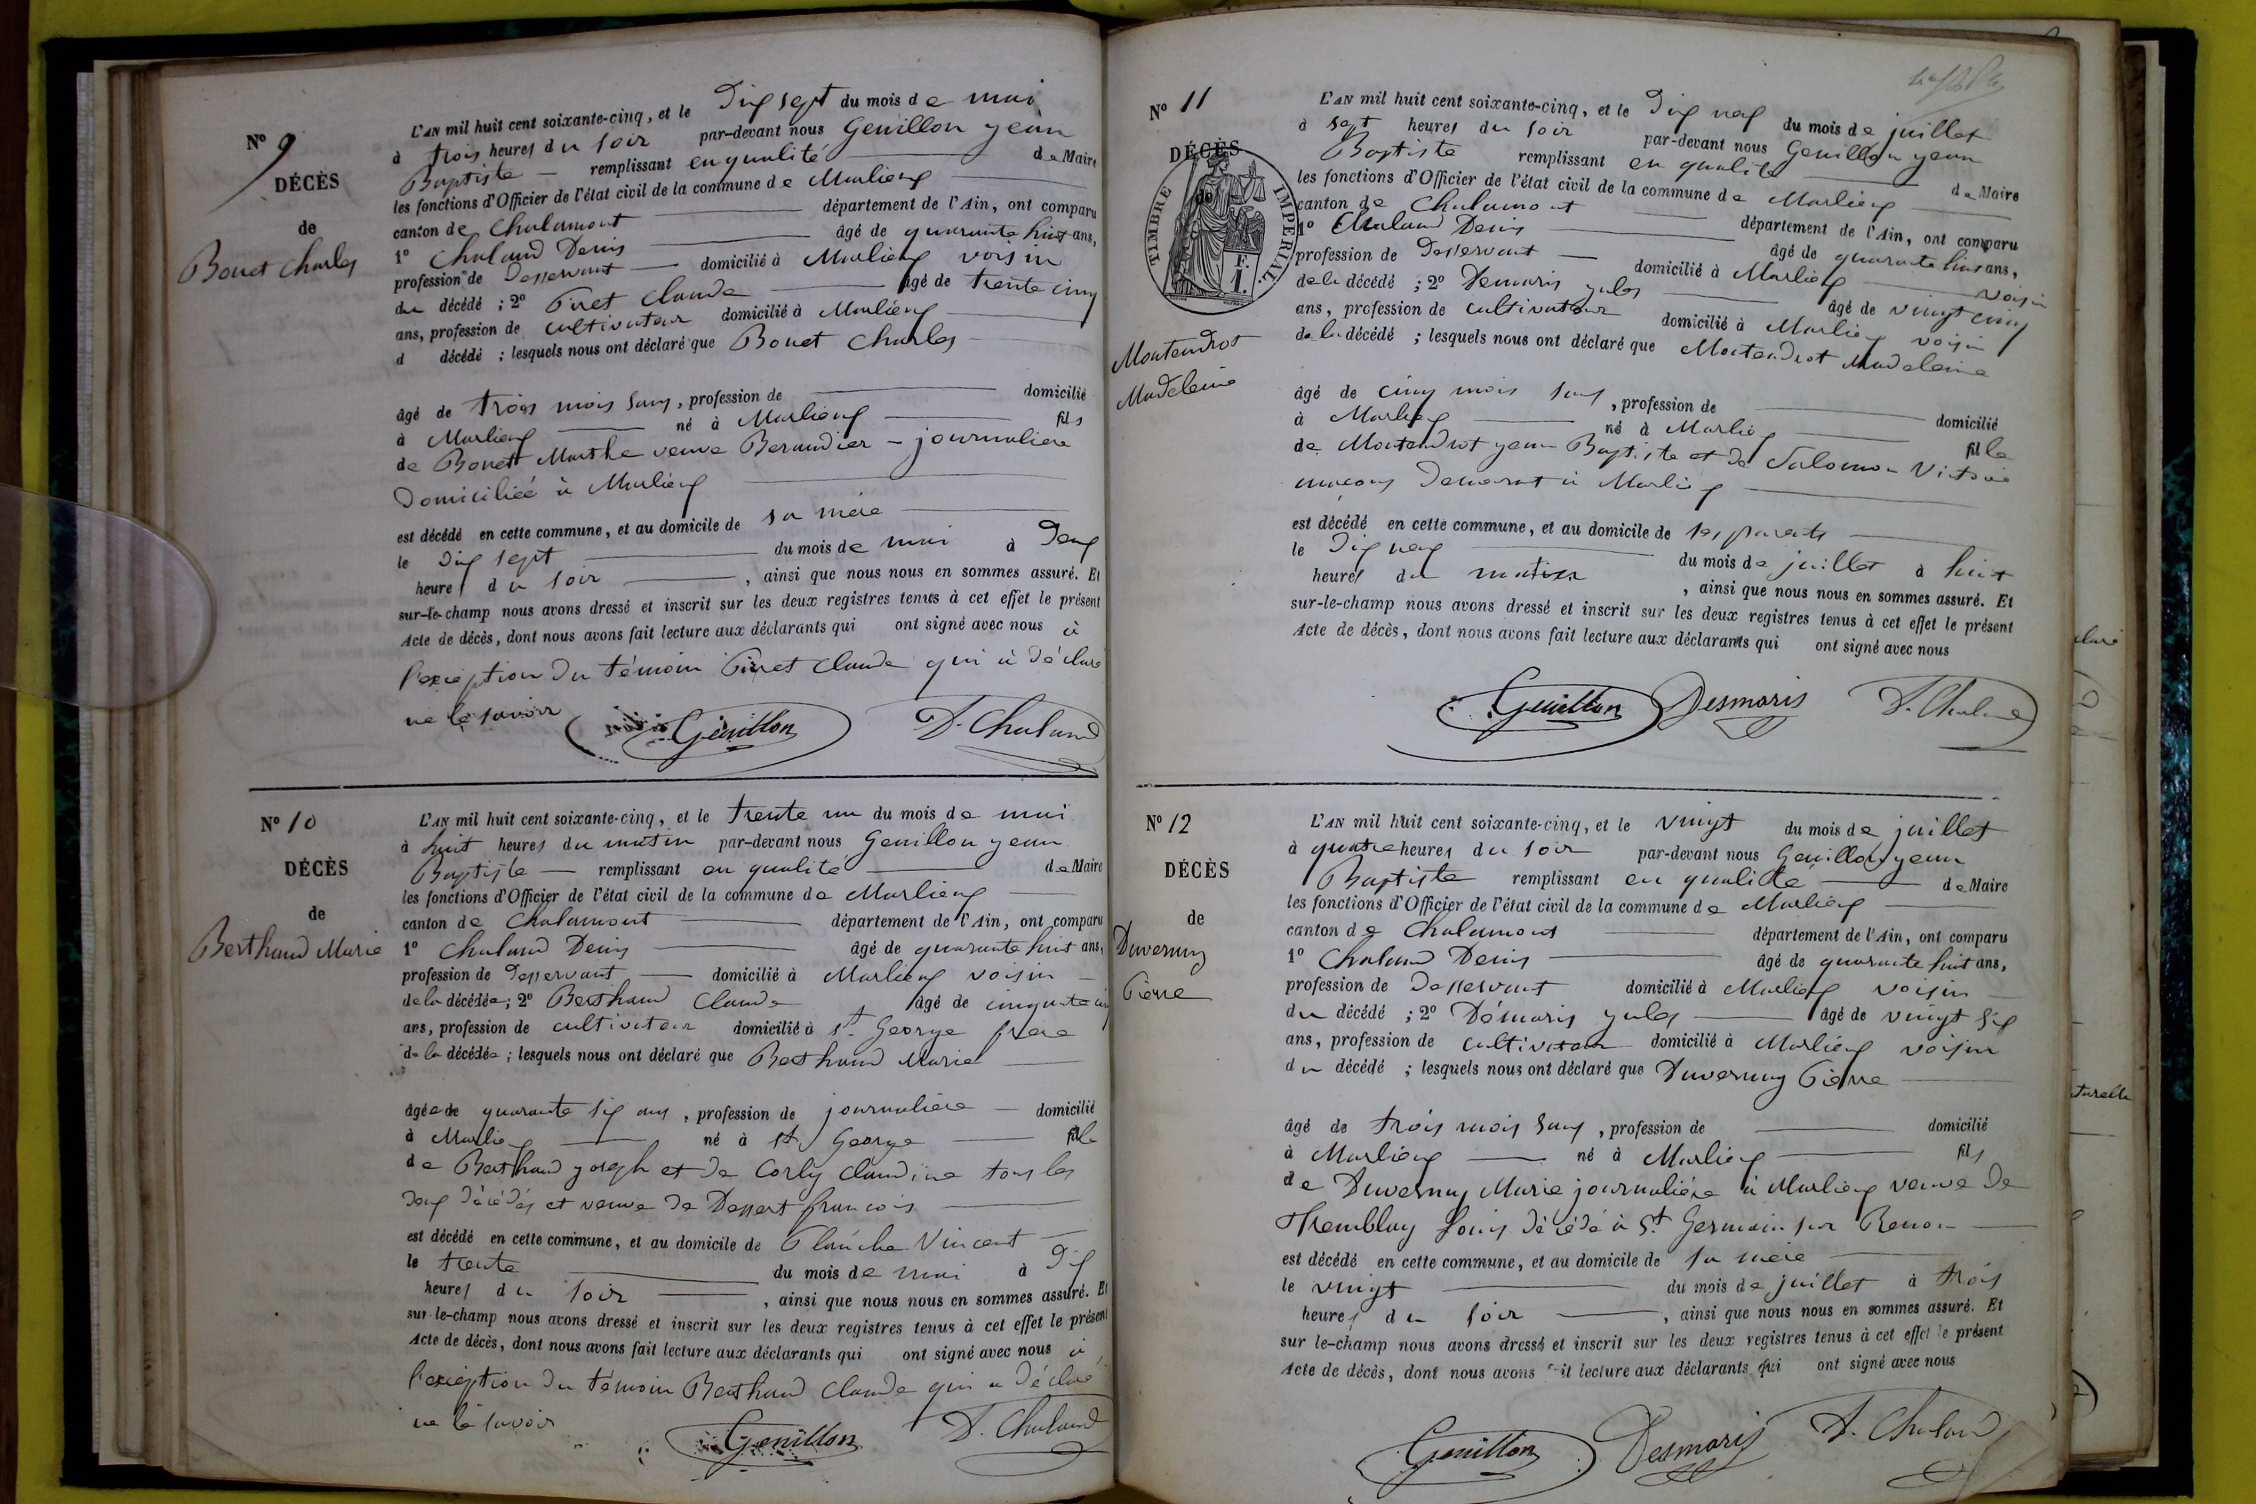 N° 9
DÉCÈS
de
Bouet Charles
L'AN mil huit cent soixante-cinq, et le Dix sept du mois de mai
à trois heures du soir par-devant nous Genillon jean
Baptiste remplissant en qualité de Maire
les fonctions d'Officier de l'état civil de la commune de Marlieux
canton de Chalamont département de l'Ain, ont comparu
1° Chaland Denis âgé de quarante huit ans,
profession de Desservant domicilié à Marlieux voisin
du décédé ; 2° Piret Claude âgé de trente cinq
ans, profession de cultivateur domicilié à Marlieux
d décédé ; lesquels nous ont déclaré que Bouet Charles
âgé de trois mois sans, profession de domicilié
à Marlieux né à Marlieux fils
de Bouet Marthe veuve Beraudier - journaliere
Domiciliée à Marlieux
est décédé en cette commune, et au domicile de sa mère
le Dix sept du mois de mai à Deux
heures du soir, ainsi que nous nous en sommes assuré. Et
sur-le-champ nous avons dressé et inscrit sur les deux registres tenus à cet effet le présent
Acte de décès, dont nous avons fait lecture aux déclarants qui ont signé avec nous à
l'exception du témoin Piret Claude qui à déclaré
ne le savoir
Genillon D. Chaland
N° 10
DÉCÈS
de
Berthaud Marie
L'AN mil huit cent soixante-cinq, et le trente un du mois de mai
à huit heures du matin par-devant nous Genillon jean
Baptiste remplissant en qualité de Maire
les fonctions d'Officier de l'état civil de la commune de Marlieux
canton de Chalamont département de l'Ain, ont comparu
1° Chaland Denis âgé de quarante huit ans,
profession de Desservant domicilié à Marlieux voisin
de la décédée ; 2° Berthaud Claude âgé de cinquante
ans, profession de cultivateur domicilié à St George frère
de la décédée ; lesquels nous ont déclaré que Berthaud Marie
âgée de quarante six ans, profession de journaliere domicilié
à Marlieux né à St George fille
de Berthaud joseph et de Corly Claudine tous les
deux décédés et veuve de Dessert francois
est décédé en cette commune, et au domicile de Planche Vincent
le trente du mois de mai à Dix
heures du soir, ainsi que nous nous en sommes assuré. Et
sur-le-champ nous avons dressé et inscrit sur les deux registres tenus à cet effet le présent
Acte de décès, dont nous avons fait lecture aux déclarants qui ont signé avec nous à
l'exception du témoin Berthaud Claude qui a déclaré
ne le savoir
Genillon D. Chaland
N° 11
DÉCÈS
de
TIMBRE IMPERIAL
F.
1.
Montendrot
Madeleine
L'AN mil huit cent soixante-cinq, et le Dix neuf du mois de juillet
à sept heures du soir par-devant nous Genillon jean
Baptiste remplissant en qualité de Maire
les fonctions d'Officier de l'état civil de la commune de Marlieux
canton de Chalamont département de l'Ain, ont comparu
1° Chaland Denis âgé de quarante huit ans,
profession de Desservant domicilié à Marlieux voisin
de la décédé ; 2° Demaris jules âgé de vingt cinq
ans, profession de cultivateur domicilié à Marlieux voisin
de la décédé ; lesquels nous ont déclaré que Montendrot Madeleine
âgé de cinq mois sans, profession de domicilié
à Marlieux né à Marlieux fille
de Montendrot jean Baptiste et de Salomon Victoire
maçons Demeurant à Marlieux
est décédé en cette commune, et au domicile de ses parents
le Dix neuf du mois de juillet à huit
heures du matin, ainsi que nous nous en sommes assuré. Et
sur-le-champ nous avons dressé et inscrit sur les deux registres tenus à cet effet le présent
Acte de décès, dont nous avons fait lecture aux déclarants qui ont signé avec nous
Genillon Desmaris D. Chaland
N° 12
DÉCÈS
de
Duvernay
Pierre
L'AN mil huit cent soixante-cinq, et le vingt du mois de juillet
à quatre heures du soir par-devant nous Genillon jean
Baptiste remplissant en qualité de Maire
les fonctions d'Officier de l'état civil de la commune de Marlieux
canton de Chalamont département de l'Ain, ont comparu
1° Chaland Denis âgé de quarante huit ans,
profession de Desservant domicilié à Marlieux voisin
du décédé ; 2° Démaris jules âgé de vingt six
ans, profession de cultivateur domicilié à Marlieux voisin
du décédé ; lesquels nous ont déclaré que Duvernay Pierre
âgé de trois mois sans, profession de domicilié
à Marlieux né à Marlieux fils
de Duvernay Marie journalière à Marlieux veuve de
Tremblay Louis décédé à St Germain sur Renon
est décédé en cette commune, et au domicile de sa mère
le vingt du mois de juillet à trois
heures du soir, ainsi que nous nous en sommes assuré. Et
sur le-champ nous avons dressé et inscrit sur les deux registres tenus à cet effet le présent
Acte de décès, dont nous avons fait lecture aux déclarants qui ont signé avec nous
Genillon Desmaris D. Chaland